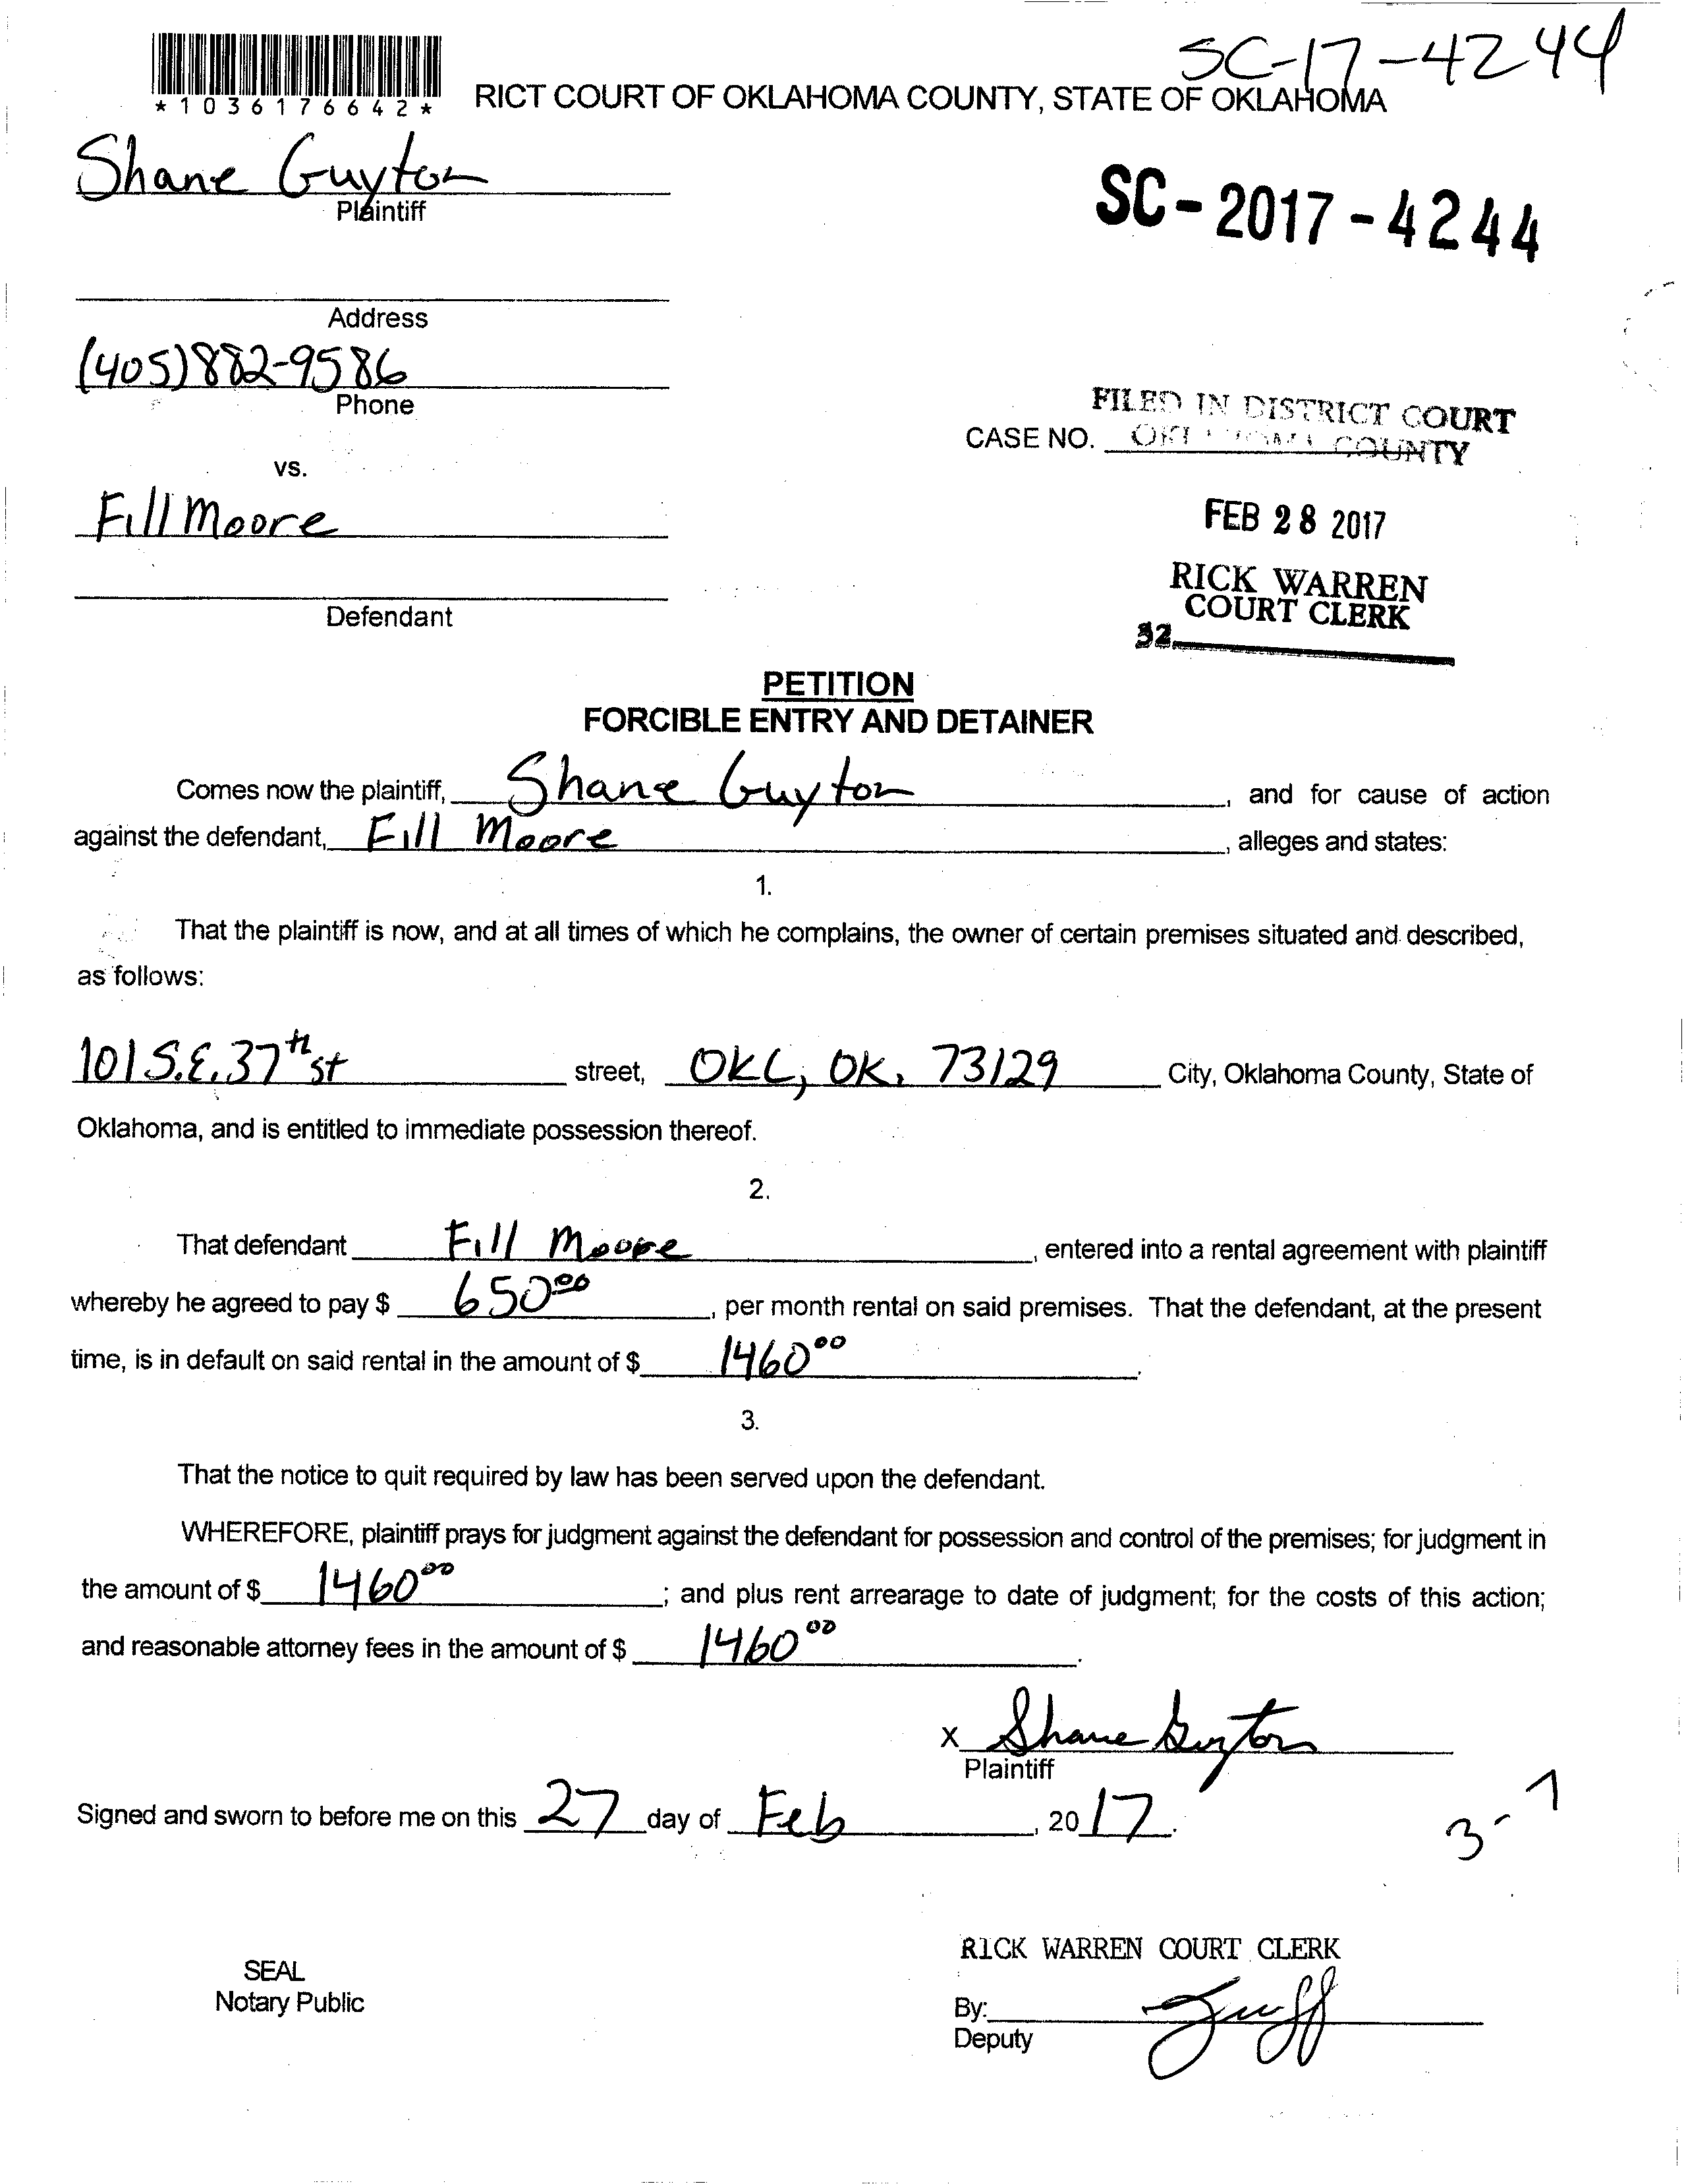 SC-17-4244
*1036176642*
RICT COURT OF OKLAHOMA COUNTY, STATE OF OKLAHOMA
Shane Guyton
Plaintiff
SC-2017-4244
Address
(405)882-9586
Phone
FILED IN DISTRICT COURT
CASE NO. OKLAHOMA COUNTY
vs.
Fill Moore
FEB 28 2017
RICK WARREN
COURT CLERK
Defendant
32
PETITION
FORCIBLE ENTRY AND DETAINER
Comes now the plaintiff, Shane Guyton, and for cause of action
against the defendant, Fill Moore, alleges and states:
1.
That the plaintiff is now, and at all times of which he complains, the owner of certain premises situated and described,
as follows:
101 S.E. 37th st street, OKC, OK. 73129 City, Oklahoma County, State of
Oklahoma, and is entitled to immediate possession thereof.
2.
That defendant Fill Moore, entered into a rental agreement with plaintiff
whereby he agreed to pay $ 650.00, per month rental on said premises. That the defendant, at the present
time, is in default on said rental in the amount of $ 1460.00.
3.
That the notice to quit required by law has been served upon the defendant.
WHEREFORE, plaintiff prays for judgment against the defendant for possession and control of the premises; for judgment in
the amount of $ 1460.00; and plus rent arrearage to date of judgment; for the costs of this action;
and reasonable attorney fees in the amount of $ 1460.00.
X Shane Guyton
Plaintiff
Signed and sworn to before me on this 27 day of Feb, 2017.
3-7
RICK WARREN COURT CLERK
SEAL
Notary Public
By:
Deputy